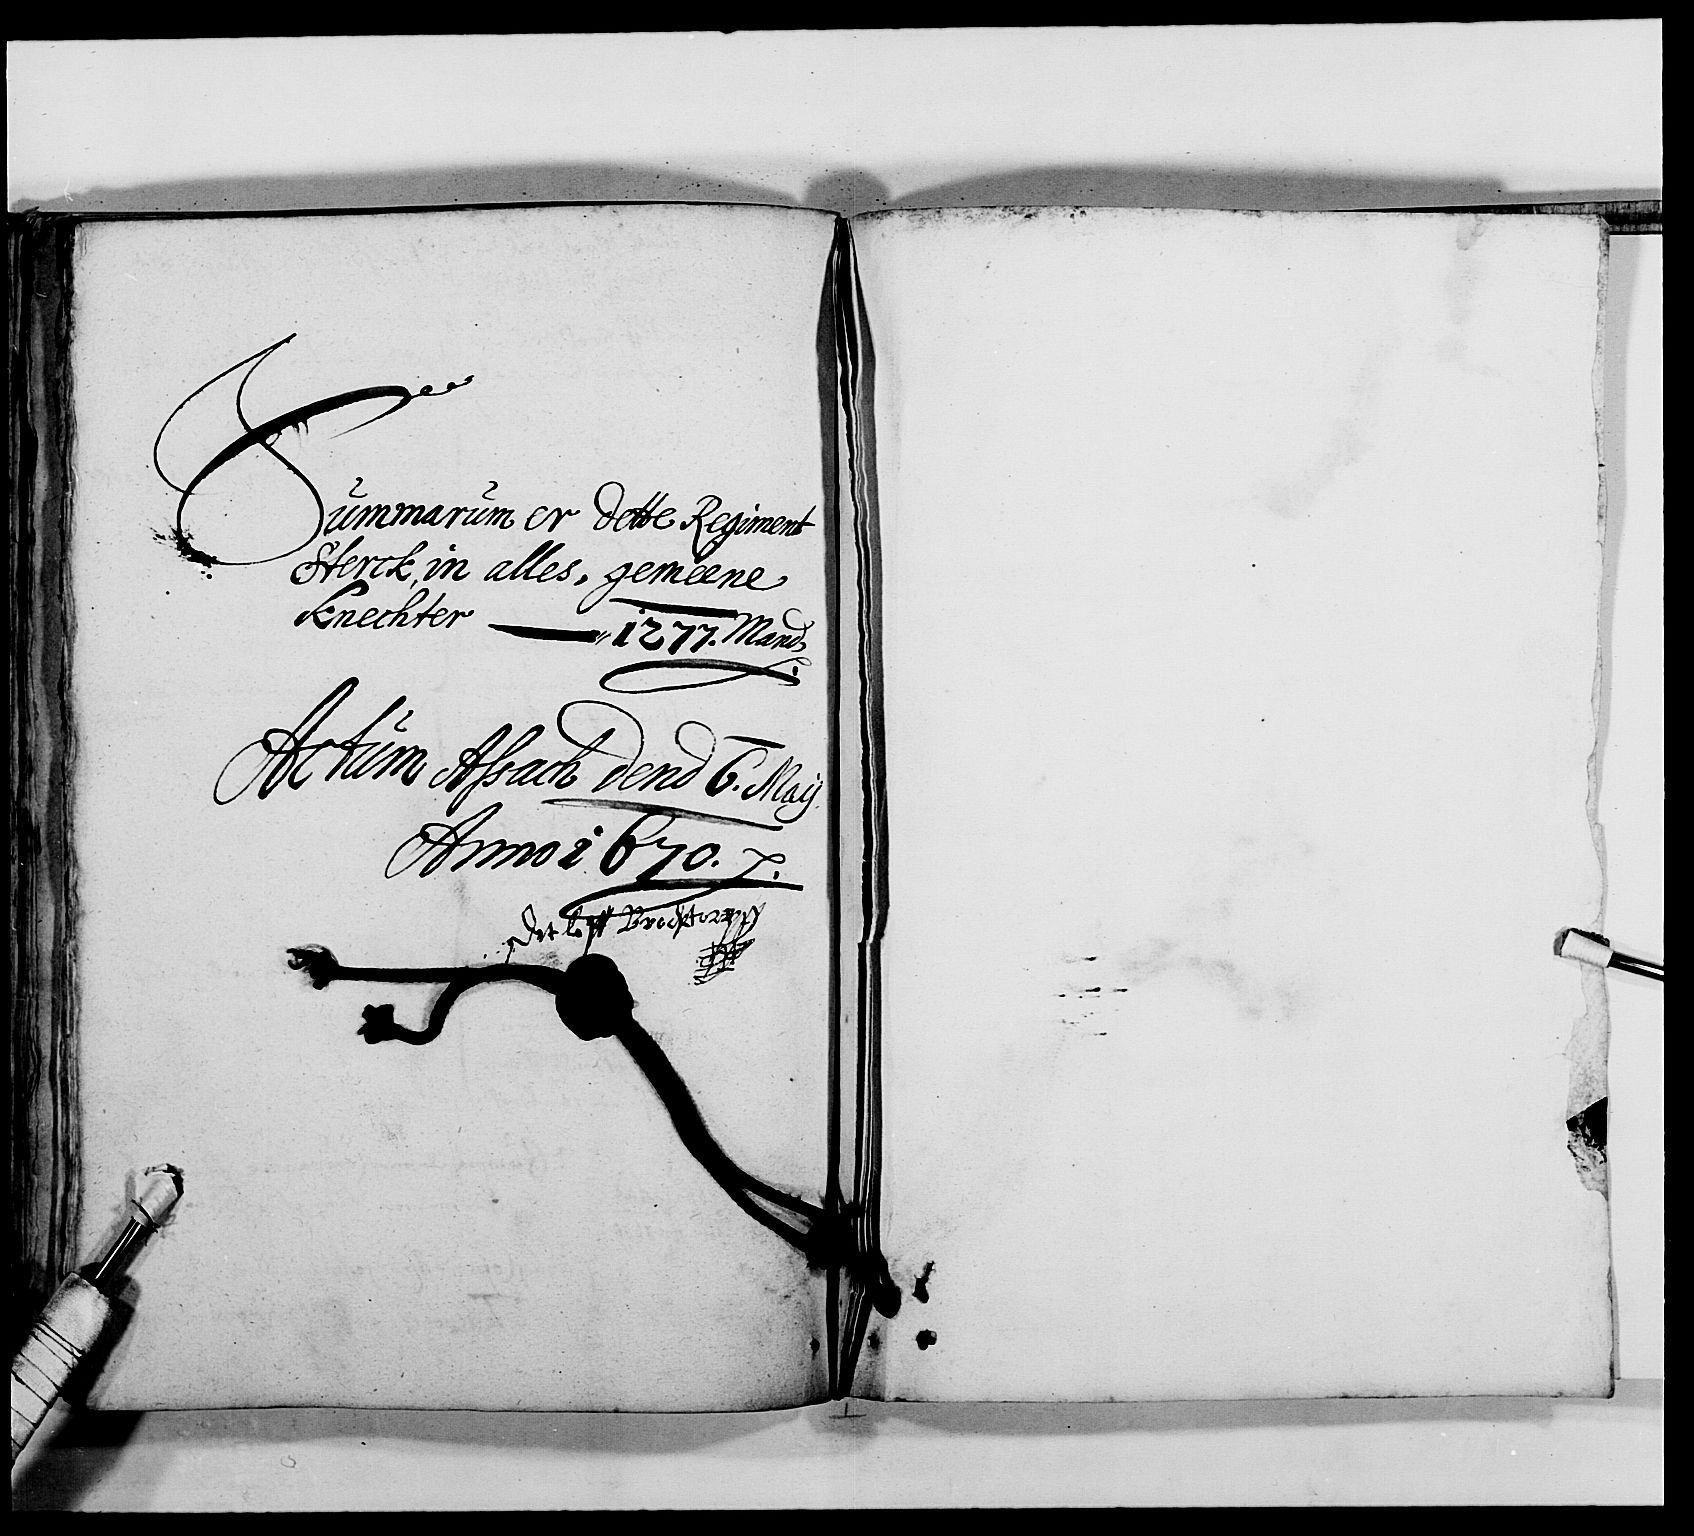 Summarum er dette Regiment
Sterck, in alles, gemeene
Knechter — 1277. Mand,
Actum Assach dend 6. Maij
Anno 1670.
Detleff Brockdorpff